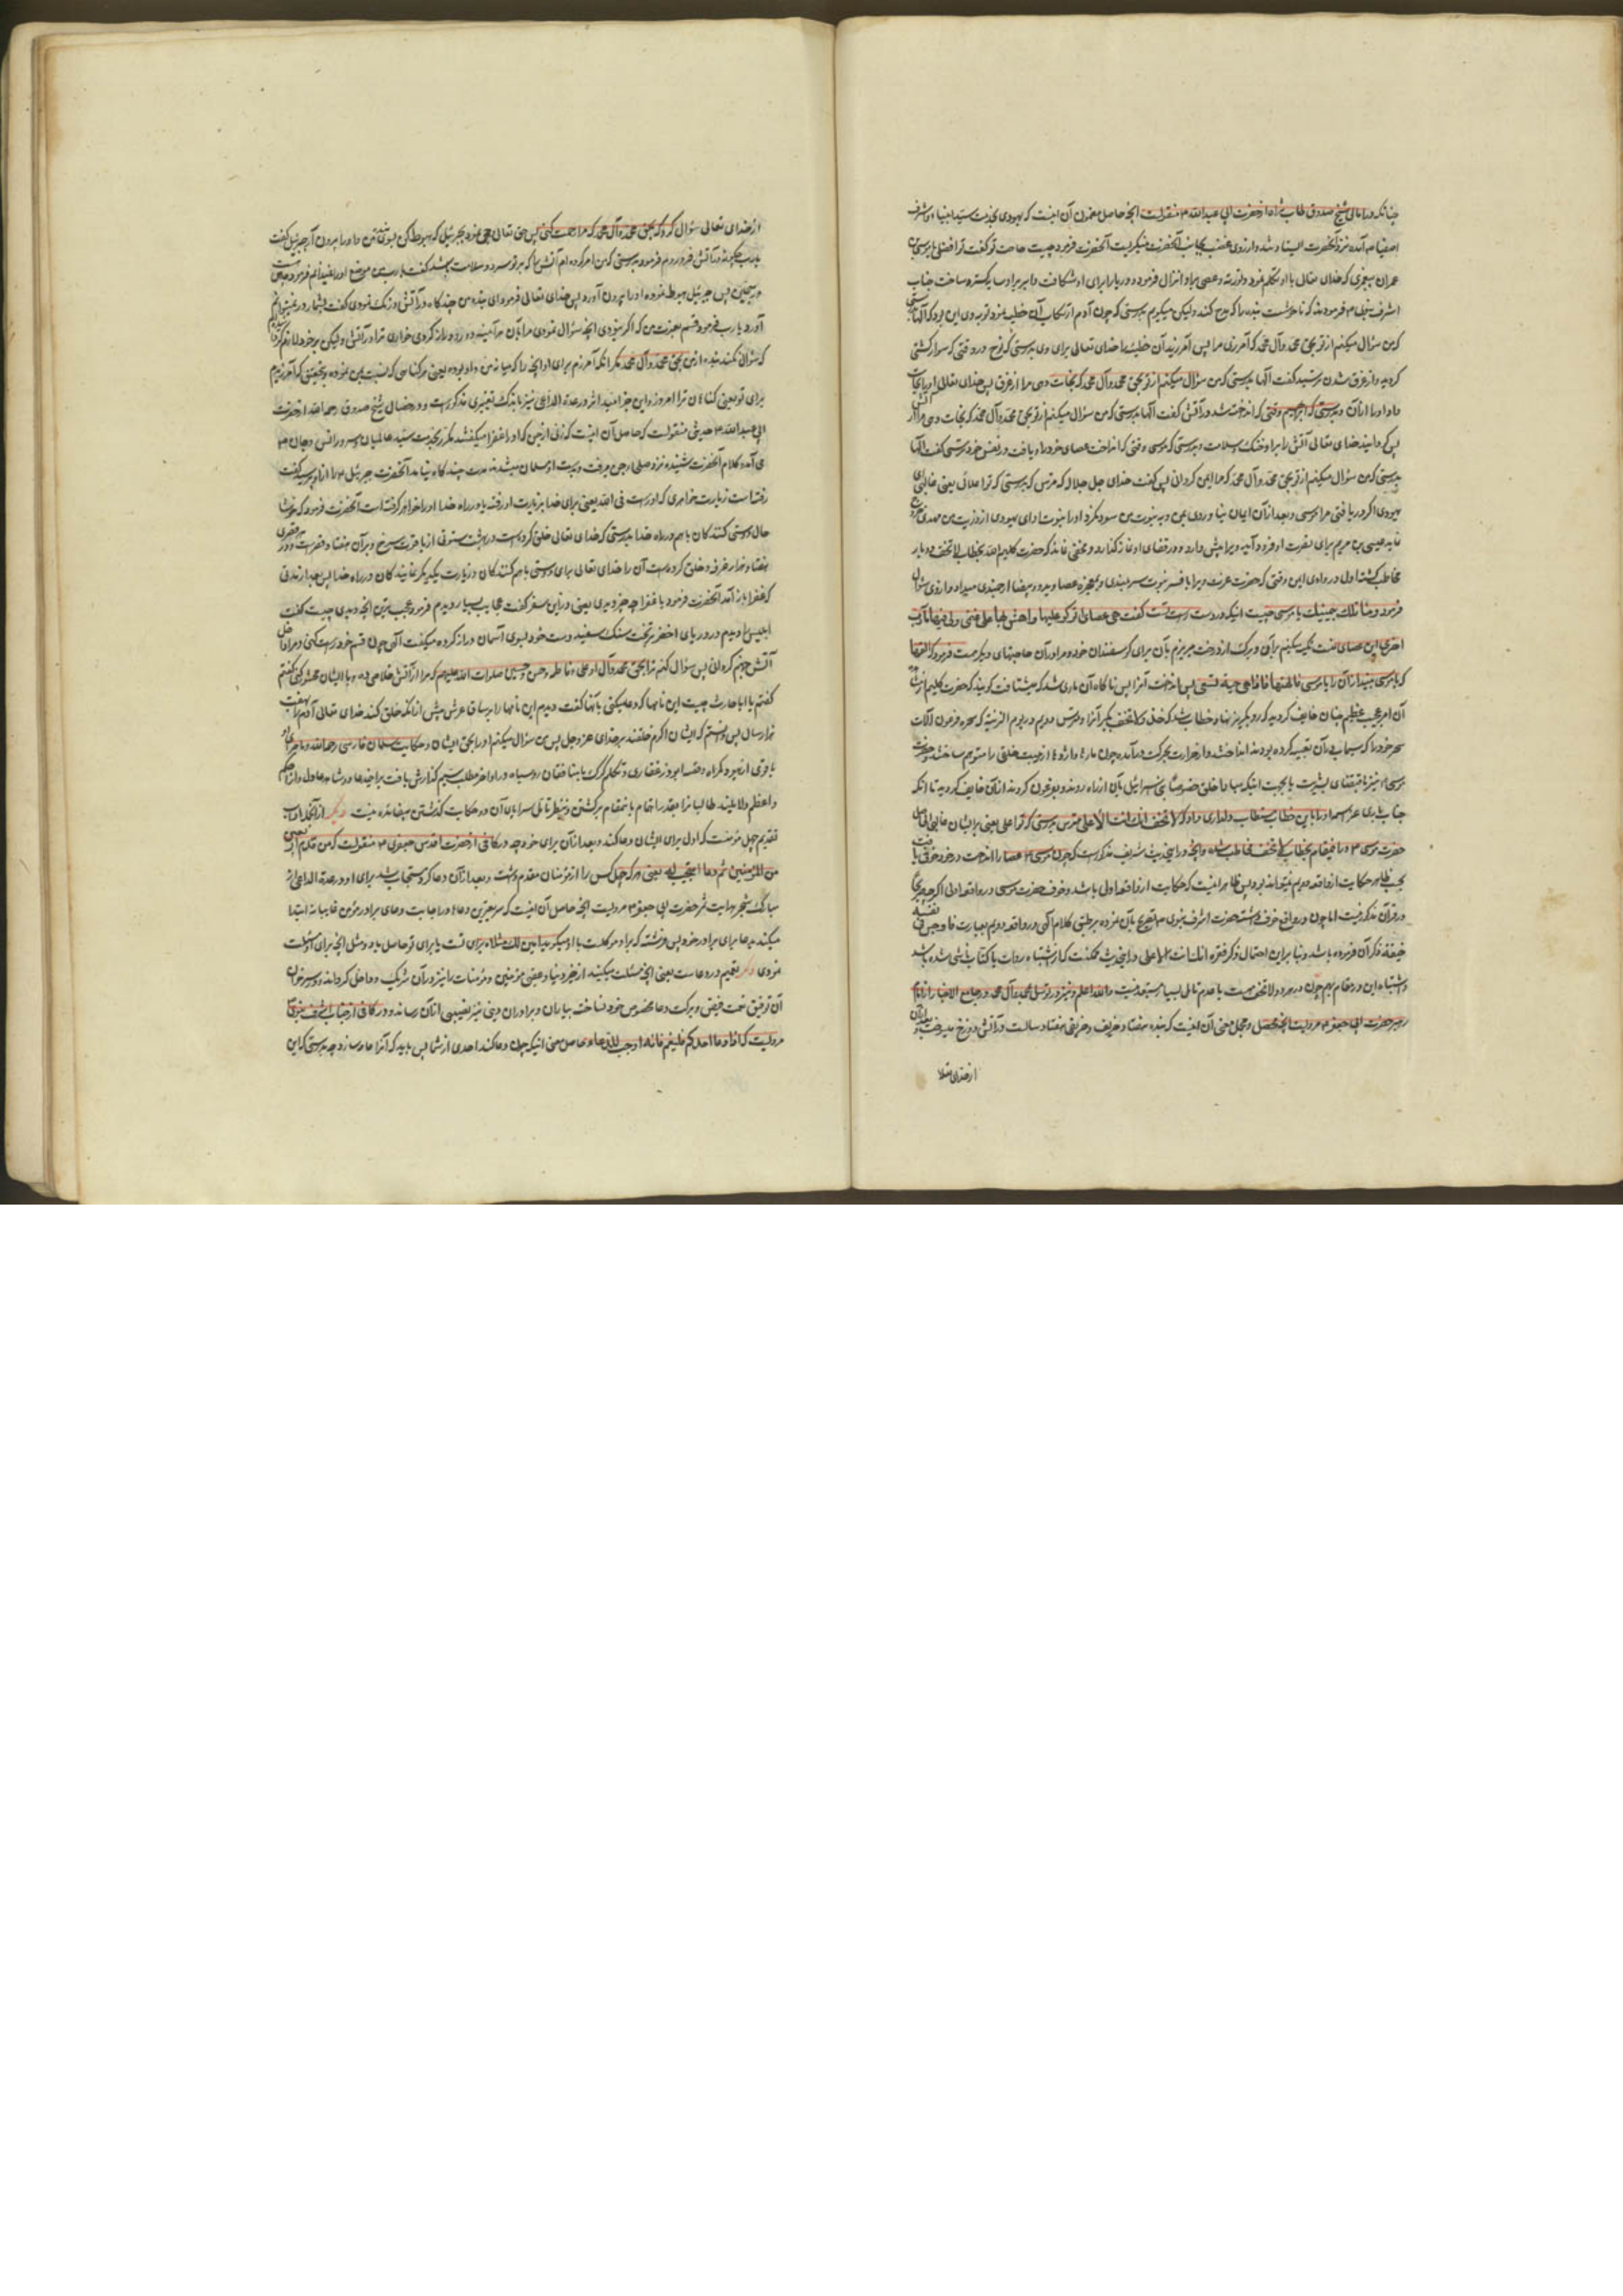 چنانکه در امالی شیخ صدوق طاب ثراه از حضرت ابی عبدالله ۴ منقولست آنچه حاصل مضمون آن اینست که یهودی بخدمت سید انبیاء و اشرف
اصفیا ص آمده نزد آنحضرت ایستاده شد و از روی غضب بجانب آنحضرت مینگریست آنحضرت فرمود چیست حاجت تو گفت تو افضلی یا موسی بن
عمران پیغمبری که خدای تعالی با او تکلم نمود و توریة و عصی بر او انزال فرمود و دریا را برای او شکافت و بابر بر او سایه گستر ساخت جناب
اشرف نبوی ۳ فرمودند که ناخوشست بنده را که مدح کند ولیکن میگویم بدرستی که چون آدم ارتکاب آن خطیئه نمود توبه وی این بود که الها بدرستی
که من سؤال میکنم از تو بحق محمد و آل محمد که آمرزی مرا پس آمرزید آن خطیئه را خدای تعالی برای وی بدرستی که نوح در وقتی که سوار کشتی
گردید و از غرق شدن ترسید گفت الها بدرستی که من سؤال میکنم از تو بحق محمد و آل محمد که نجات دهی مرا از غرق پس خدای تعالی او را نجات
داد او را از آن و بدرستی که ابراهیم وقتی که انداخته شد در آتش گفت الها بدرستی که من سؤال میکنم از تو بحق محمد و آل محمد که نجات دهی مرا از آن
پس گردانید خدای تعالی آتش را بر او خنک و سلامت و بدرستی که موسی وقتی که انداخت عصای خود را و یافت در نفس خود ترسی گفت الها
بدرستی که من سؤال میکنم از تو بحق محمد و آل محمد که مرا ایمن گردانی پس گفت خدای جل جلاله که مترس که بدرستی که تو اعلائی یعنی غالبی ای
یهودی اگر دریافتی مرا موسی و بعد از آن ایمان نیاوردی بمن و به نبوت من سود نکرد او را نبوت او ای یهودی از ذریت من مهدی خروج
نماید عیسی بن مریم برای نصرت او فرود آید و ویرا پیش دارد و در قفای او نماز گذارد و مخفی نماند که حضرت کلیم الله بخطاب لا تخف دو بار
مخاطب گشته اول در وادی ایمن وقتی که حضرت عزت ویرا بافسر نبوت سربلندی و بمعجزه عصا و ید بیضا ارجمندی میداد و از وی سئوال
فرمود و ما تلك بيمينك يا موسى چیست اینکه در دست راست تست گفت هى عصاى اتوكؤ عليها واهش بها على غنمى ولى فيها مآرب
اخرى این عصای منست تکیه میکنم بر آن و برگ از درخت میریزم بآن برای گوسفندان خود و مرا در آن حاجتهای دیگر هست فرمود که القها
که یا موسی بینداز آن را یا موسی فالقيها فاذا هى حية تسعى پس انداخت آنرا پس ناگاه آن ماری شد که میشتافت گویند که حضرت کلیم از مشاهده
آن امر عجیب عظیم چنان خایف گردید که رو بگریز نهاد خطاب شد که خذها ولا تخف بگیر آنرا و مترس دویم در یوم الزینة که سحره فرعون آلات
سحر خود را که سیماب در آن تعبیه کرده بودند انداختند و از حرارت بحرکت در آمده چون مارها و اژدها از مهیت خلق را متوهم ساختند حضرت
موسی نیز باقتضای بشریت یا بجهت اینکه مبادا خلق خصوصا بنی اسرائیل بآن از راه روند و بفرعون گروند از آن خایف گردید تا آنکه
جناب باری عز اسمه او را باین خطاب مستطاب دلداری داد که لا تخف انك انت الاعلى مترس بدرستی که تو اعلی یعنی بر ایشان غالبی فاصل
حضرت موسی ۳ در این مقام بخطاب لا تخف مخاطب شده و آنچه در این حدیث شریف مذکورست که چون موسی ۴ عصا را انداخت و در خود خوفی یافت
بحسب ظاهر حکایت از واقعه دویم نمیتواند بود پس ظاهر اینست که حکایت از واقعه اولی باشد و خوف حضرت موسی در واقعه اولی اگر چه صریحا
در قرآن مذکور نیست اما چون در واقع خوف داشته حضرت اشرف نبوی ص تصریح بآن نموده بر طبق کلام الهی در واقعه دویم بعبارت فاوجس فى نفسه
خيفة ذکر آن فرموده باشد و بنا بر این احتمال ذکر فقره انك انت الاعلى در این حدیث ممکنست که از اشتباه روات یا کتاب ناشی شده باشد
و اشتباه این دو مقام بهم چون در هر دو لا تخف هست با عدم تامل بسیار مستبعد نیست والله اعلم و نیز در توسل بمحمد و آل محمد در جامع الاخبار از امام
رهبر حضرت ابی جعفر ۳ مرویست آنچه محصل و مجمل معنی آن اینست که بنده هفتاد خریف و خریفی هفتاد سالست در آتش دوزخ میسوخت بعد از آن
از خدای تعالی
از خدای تعالی سؤال کرد که بحق محمد و آل محمد که مرا رحمت کنی پس حق تعالی وحی نمود بجبرئیل که هبوط کن بسوی بنده من و او را بیرون آر جبرئیل گفت
یا رب چگونه در آتش فرو روم فرمود بدرستی که من امر کرده ام آتش را که بر تو سرد و سلامت باشد گفت یا رب من موضع او را نمیدانم فرمود در چاهی است
در سجین پس جبرئیل هبوط نموده او را بیرون آورد پس خدای تعالی فرمود ای بنده من چند گاه در آتش درنگ نمودی گفت بشمار در نمیتوانم
آورد یا رب فرمود قسم بعزت من که اگر نبودی آنچه سؤال نمودی مرا بآن هر آینه دور و دراز کردی خواری ترا در آتش ولیکن بر خود لازم کرده ام
که سؤال نکند بنده از من بحق محمد و آل محمد مگر آنکه آمرزم برای او آنچه را که میانه من و او بوده یعنی هر گناهی که نسبت بمن نموده و بتحقیق که آمرزیدم
برای تو یعنی گناهان ترا امروز و این خبر امید اثر در عدة الداعی نیز باندک تغییری مذکورست و در خصال شیخ صدوق رحمه الله از حضرت
ابی عبدالله ۳ حدیثی منقولست که حاصل آن اینست که زنی از جن که او را عفرا میگفتند مکرر بخدمت سید عالمیان و سرور انس و جان ص
می آمد و کلام آنحضرت شنیده نزد صلحای جن میرفت و بدست او مسلمان میشدند مدت چند گاه نیامد آنحضرت جبرئیل را از او پرسید گفت
رفته است زیارت خواهری که او راست فی الله یعنی برای خدا بزیارت او رفته یا در راه خدا او را خواهر گرفته است آنحضرت فرمود که خوشا
حال دوستی کنندگان با هم در راه خدا بدرستی که خدای تعالی خلق کرده است در بهشت ستونی از یاقوت سرخ و بر آن هفتاد قصرست و در هر قصری
هفتاد هزار غرفه و خلق کرده است آن را خدای تعالی برای دوستی با هم کنندگان و زیارت یکدیگر نمایندگان در راه خدا پس بعد از مدتی
که عفرا باز آمد آنحضرت فرمود یا عفرا چه چیز دیدی یعنی در این سفر گفت عجایب بسیار دیدم فرمود عجیب ترین آنچه دیدی چیست گفت
ابلیس را دیدم در دریای اخضر بر تخت سنگ سفید دست خود بسوی آسمان دراز کرده میگفت الهی چون قسم خود راست کنی و مرا داخل
آتش جهنم گردانی پس سؤال کنم ترا بحق محمد و آل او علی و فاطمه و حسن و حسین صلوات الله علیهم که مرا از آتش خلاصی ده و با ایشان محشور کنی گفتم
گفتم یا ابا حارث چیست این نامها که دعا میکنی بآنها گفت دیدم این نامها را بر ساق عرش پیش از آنکه خلق کند خدای تعالی آدم را بهفت
هزار سال پس دانستم که ایشان اکرم خلقند بر خدای عز و جل پس من سؤال میکنم او را بحق ایشان و حکایت سلمان فارسی رحمه الله و ماجرای او
با قوم از یهود گمراه و قصه ابوذر غفاری و تکلم گرگ با منافقان روسیاه در اواخر مطلب سیم گذارش یافت
و اعظم دلایلند طالبا ترا بعد از اتمام بآنمقام برگشتن و بنظر تامل سراپای آن دو حکایت گذشتن بیفائده نیست دیگر از آنجمله آداب
تقدیم چهل مؤمنست که اول برای ایشان دعا کند و بعد از آن برای خود چه در کافی از حضرت اقدس جعفری ۴ منقولست که من قدم اربعین
من المؤمنين ثم دعا استجيب له یعنی هر که چهل کس را از مؤمنان مقدم داشت و بعد از آن دعا کرد مستجاب شد برای او و در عدة الداعی از
سالک نهج هدایت حضرت ابی جعفر ۳ مرویست آنچه حاصل آن اینست که سریعترین دعاها در اجابت دعای برادر مؤمن غایبانه ابتدا
میکند بدعا برای برادر خود پس فرشته که بر او موکلست با او میگوید آمین ولك مثلاه برای تست یا برای تو حاصل باد دو مثل آنچه برای او مسئلت
نمودی دیگر تعمیم در دعاست یعنی آنچه مسئلت میکنید از خیر دنیا و عقبی مؤمنین و مؤمنات را نیز در آن شریک و داخل گرداند و
آن توفیق نعمت فیض و برکت دعا مخصوص خود نساخته بیاران و برادران دینی نیز نصیبی از آن رساند و در کافی از جناب اشرف نبوی ص
مرویست که اذا دعا احدكم فليعم فانه اوجب للدعاء و حاصل معنی اینکه چون دعا کند احدی از شما پس باید که آنرا عام سازد چه بدرستی که این